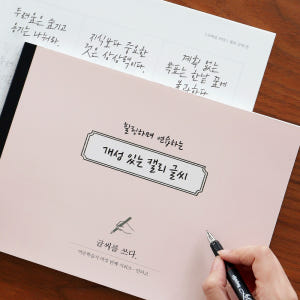 두려움은 숨기고
용기는 나눠라.
지식보다 중요한
것은 상상력이다.
계획 없는
목표는 한낱 꿈에
불과하다
힐링하며 연습하는
개성 있는 캘리 글씨
글씨를 쓰다.